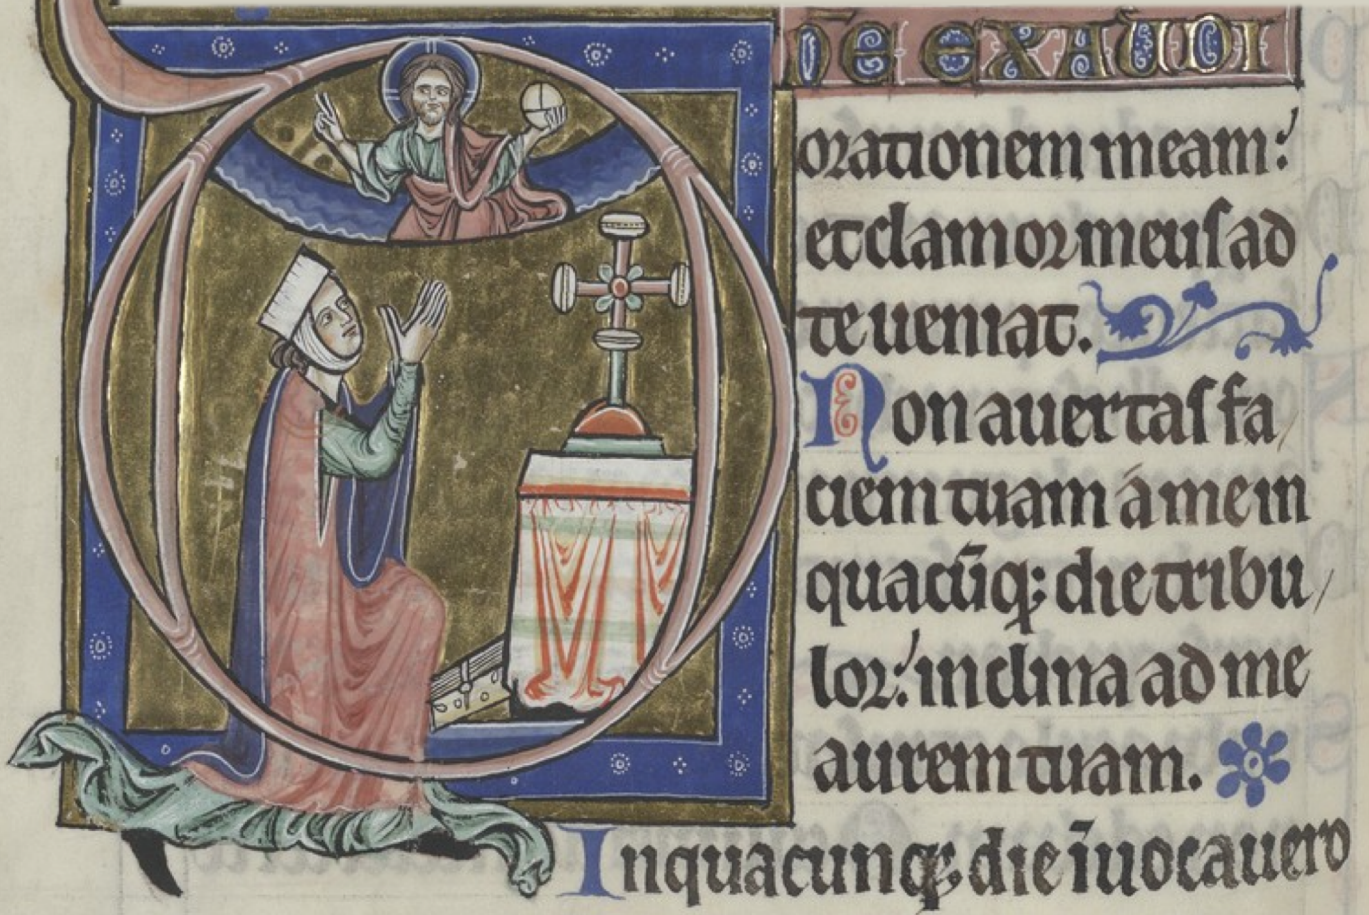 nē exaudi
orationem meam:
et clamor meus ad
te ueniat.
Non auertas fa
ciem tuam a me in
quacūq; die tribu
lor: inclina ad me
aurem tuam.
In quacunq; die īuocauero